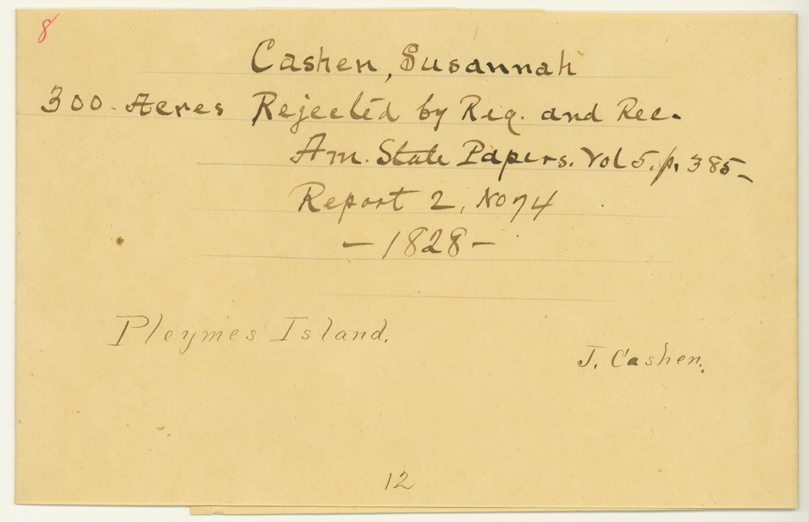 8
Cashen, Susannah
300. Acres Rejected by Reg. and Rec.
Am. State Papers. Vol 5, p. 385-
Report 2, No 74
- 1828 -
Pleymes Island.
J. Cashen.
12